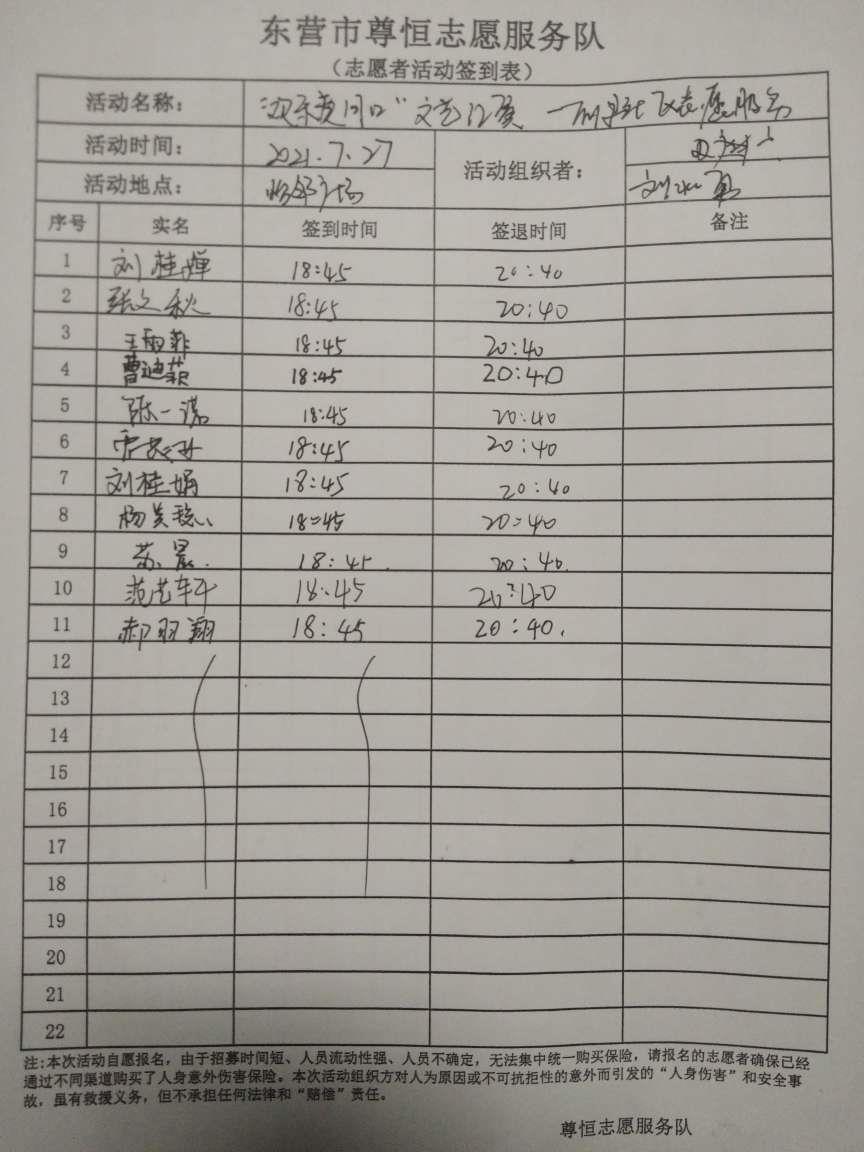 东营市尊恒志愿服务队
（志愿者活动签到表）
活动名称： 文艺 愿服务
活动时间： 2021.7.27 活动组织者：
活动地点： 广场 刘
序号 实名 签到时间 签退时间 备注
1 刘桂婵 18:45 20:40
2 张文秋 18:45 20:40
3 王雨菲 18:45 20:40
4 曹迪菲 18:45 20:40
5 陈一诺 18:45 20:40
6 18:45 20:40
7 刘桂娟 18:45 20:40
8 杨 18:45 20:40
9 苏晨. 18:45. 20:40.
10 范 18:45 20:40
11 郝羽翔 18:45 20:40.
12
13
14
15
16
17
18
19
20
21
22
注:本次活动自愿报名，由于招募时间短、人员流动性强、人员不确定，无法集中统一购买保险，请报名的志愿者确保已经
通过不同渠道购买了人身意外伤害保险。本次活动组织方对人为原因或不可抗拒性的意外而引发的“人身伤害”和安全事
故，虽有救援义务，但不承担任何法律和“赔偿”责任。
尊恒志愿服务队